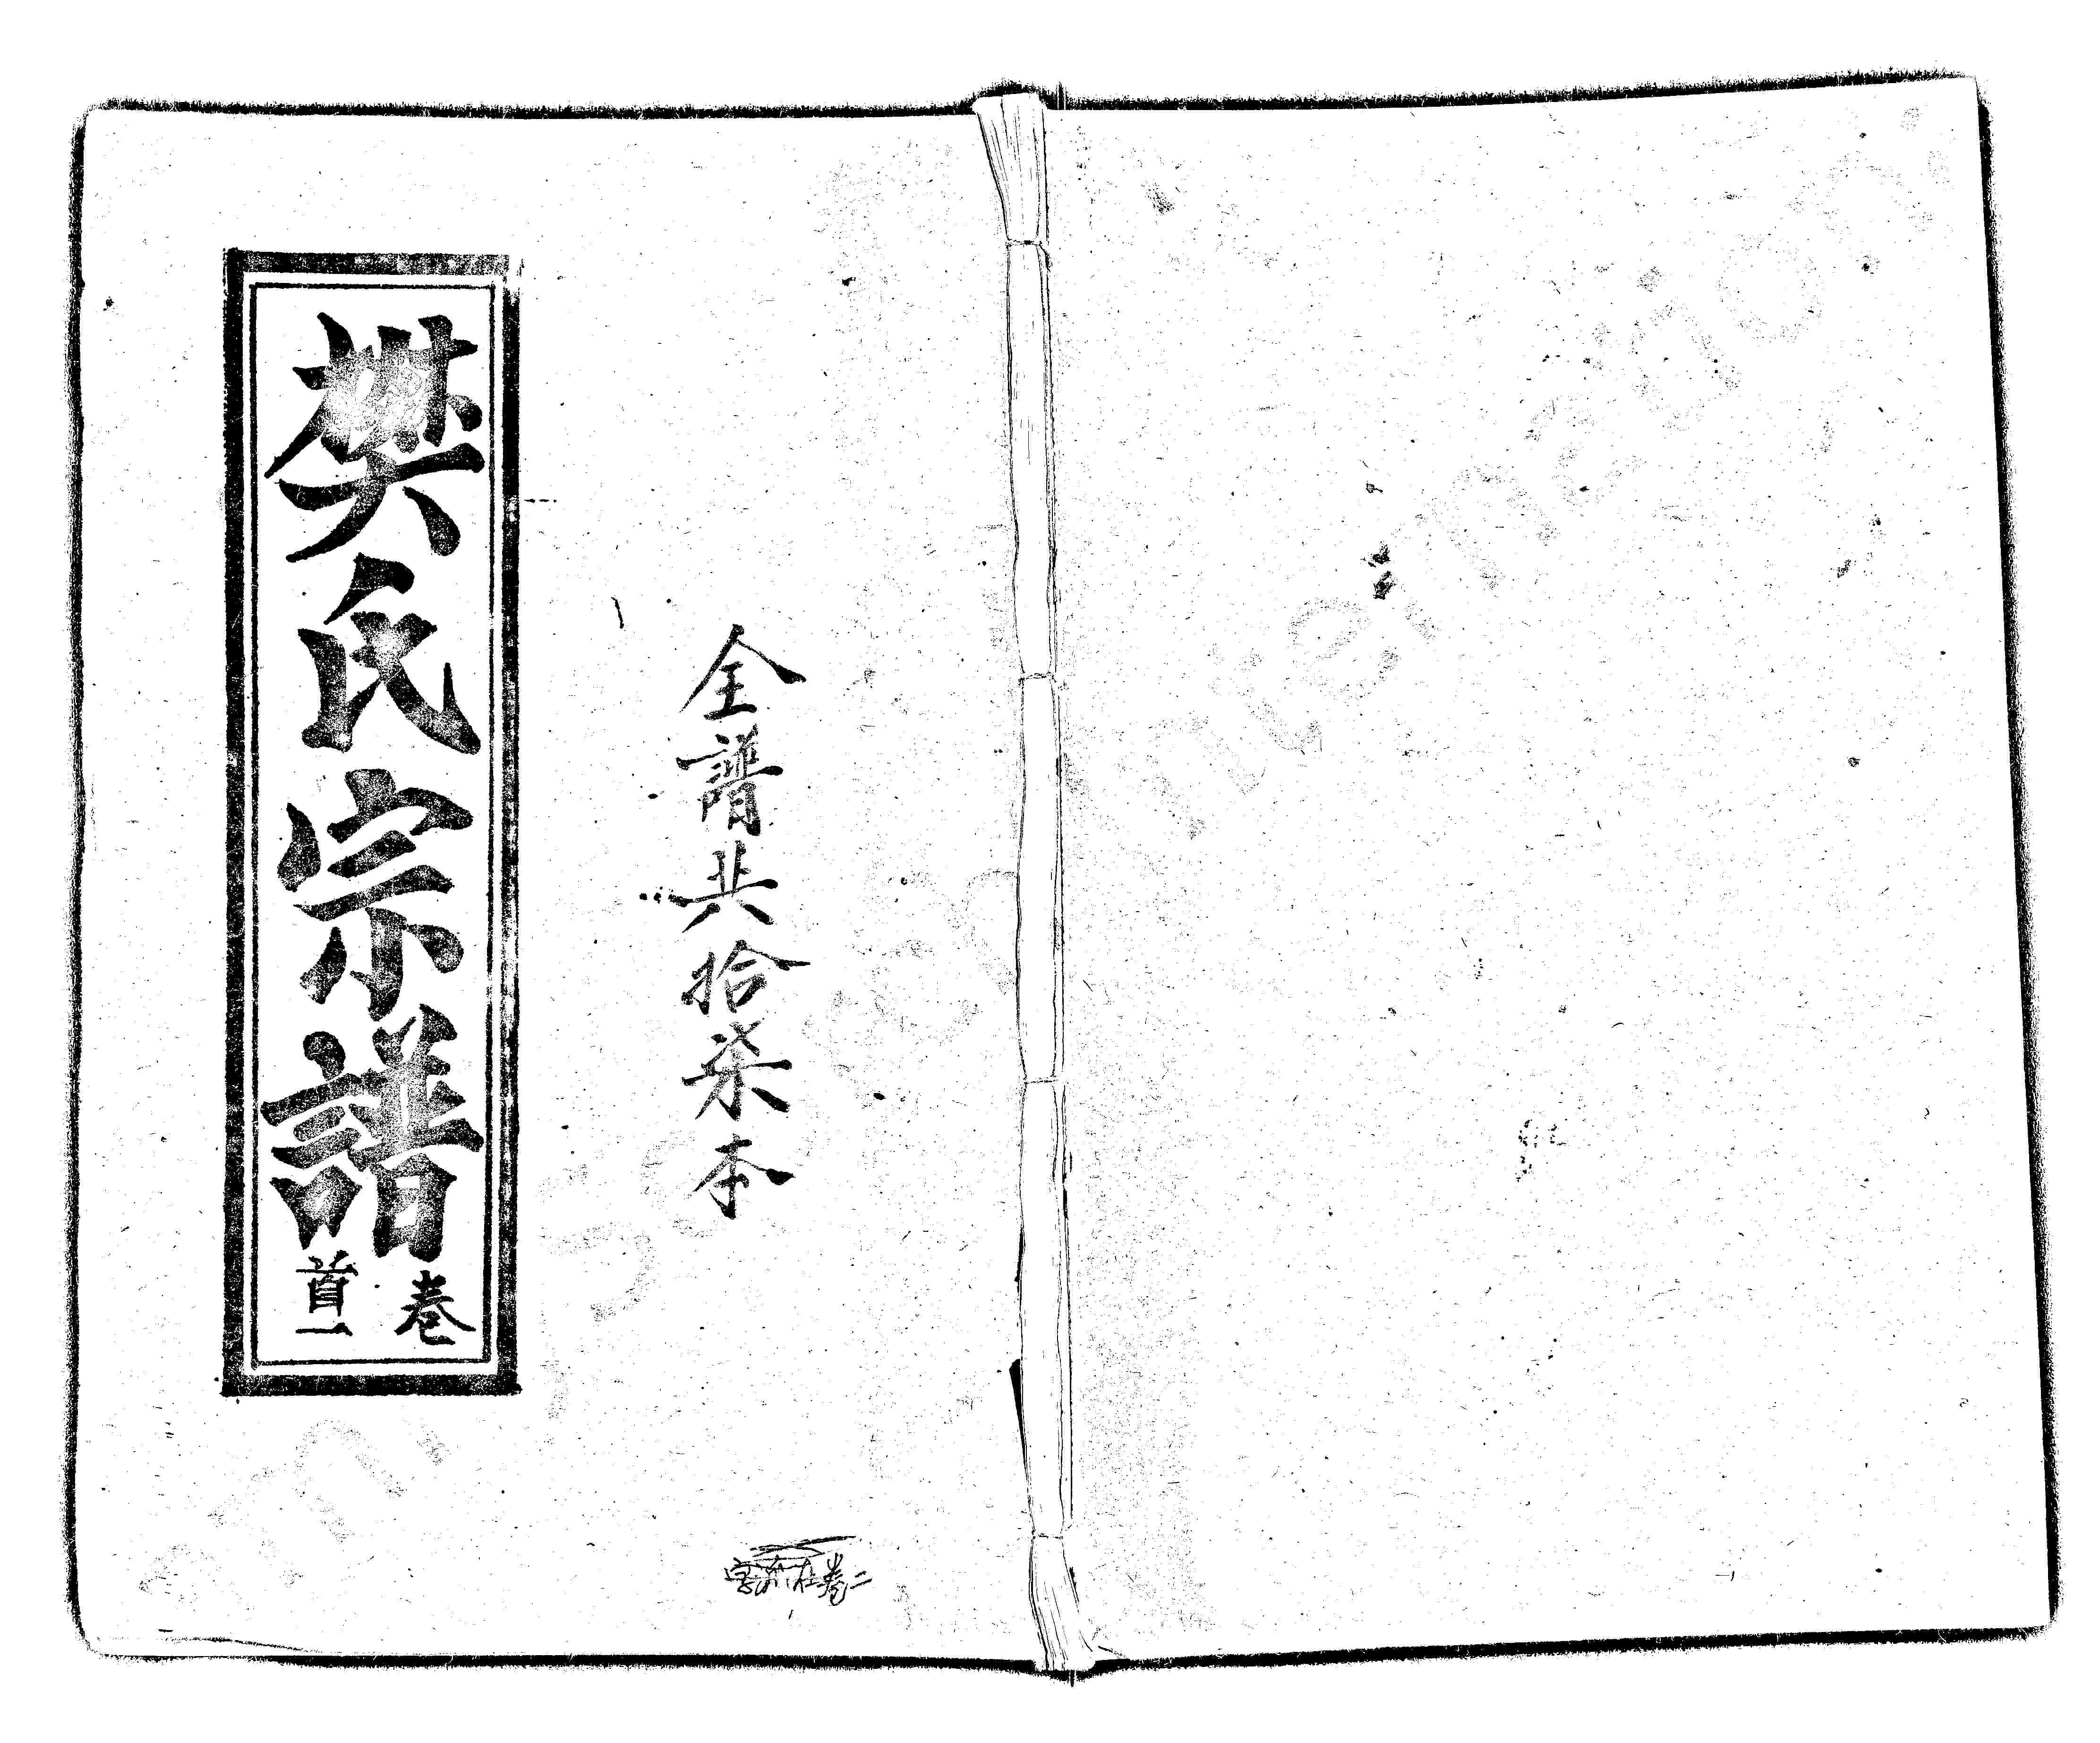 全譜共拾柒本
樊氏宗譜
卷
首一
卷二